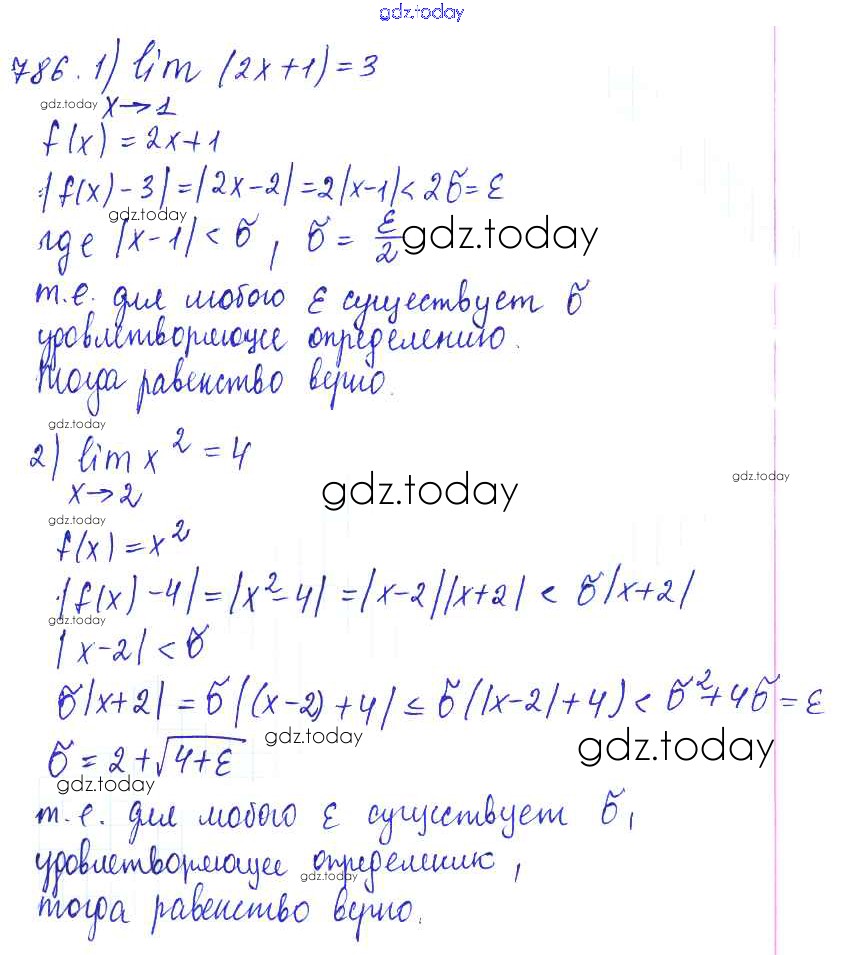 gdz.today
786. 1) lim (2x+1) = 3
gdz.today x→1
f(x) = 2x+1
|f(x) - 3| = |2x-2| = 2|x-1| < 2б = ε
gdz.today
где |x-1| < б, б = ε/2 gdz.today
т.е. для любого ε существует б
уровлетворяющее определению.
Тогда равенство верно.
gdz.today
2) lim x² = 4
x→2 gdz.today gdz.today
gdz.today
f(x) = x²
|f(x) - 4| = |x²-4| = |x-2||x+2| < б|x+2|
gdz.today
|x-2| < б
б|x+2| = б|(x-2)+4| ≤ б(|x-2|+4) < б²+4б = ε
gdz.today gdz.today
б = 2+√4+ε
gdz.today
т.е. для любого ε существует б,
уровлетворяющее определению,
gdz.today
тогда равенство верно.